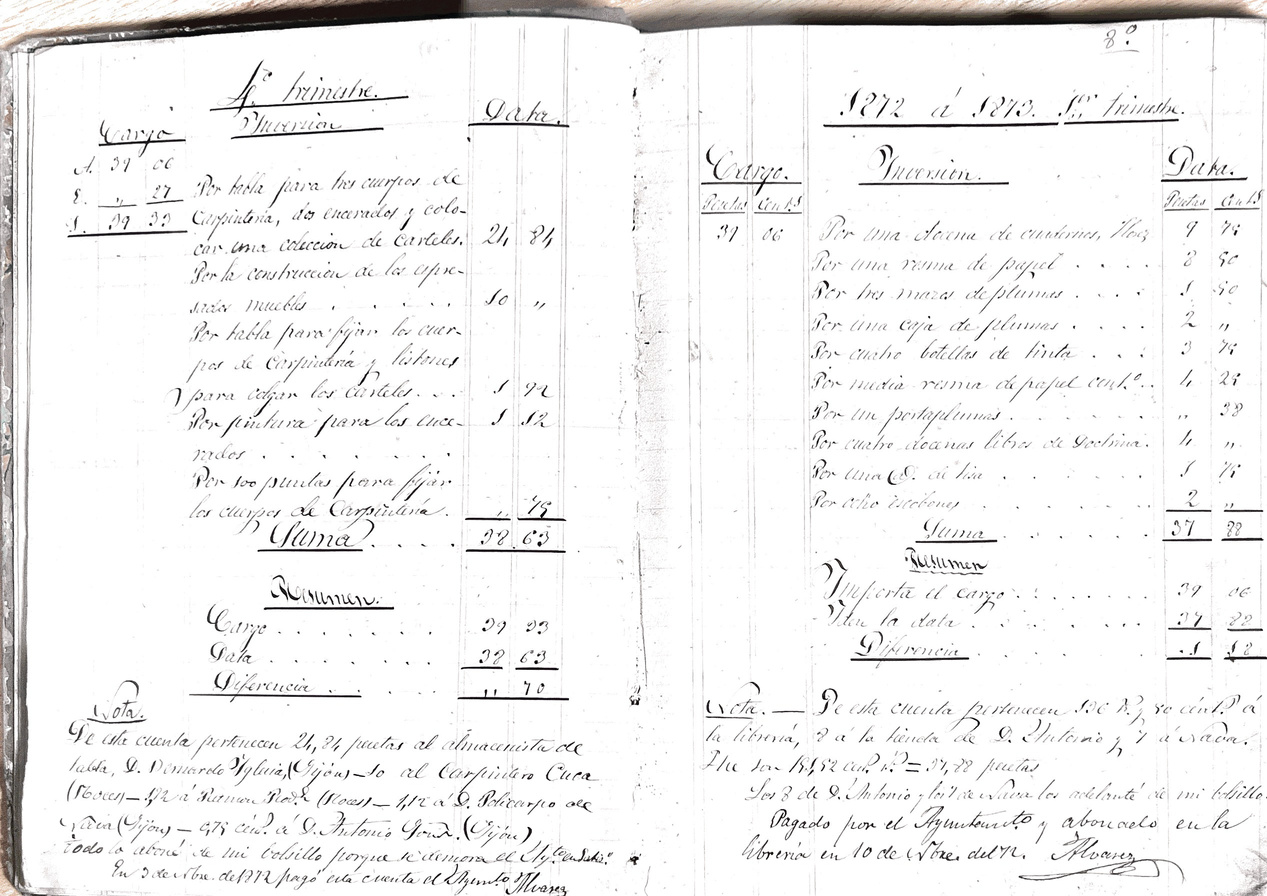 4º trimestre.
Cargo Inversion Data.
A. 39 06
E. „ 27
S. 39 33
Por tabla para tres cuerpos de
Carpintería, dos encerados y colo-
car una coleccion de Carteles. 24 84
Por la construccion de los espre-
sados muebles . . . . . 10 „
Por tabla para fijar los cuer-
pos de Carpintería y listones
para colgar los carteles. . . 1 92
Por pintura para los ence- 1 12
rados . . . . . . .
Por 100 puntas para fijar
los cuerpos de Carpintería. „ 75
Suma . . . . 38 63
Resumen.
Cargo . . . . . . 39 33
Data . . . . . . 38 63
Diferencia . . . „ 70
Nota.
De esta cuenta pertenecen 24,84 pesetas al almacenista de
tabla, D. Bernardo Iglesia, (Gijón) – 10 al Carpintero Cuca
(Roces) – 1,92 á Ramon Rodz (Roces) – 1,12 á D. Policarpo de
Nava (Gijón) – 0,75 cénts á D. Antonio (Gijón)
Todo lo aboné de mi bolsillo porque se demora el Aytº
En 3 de Nbre. de 1872 pagó esta cuenta el Ayuntº Alvarez
8º
1872 á 1873. 1er trimestre.
Cargo. Inversion. Data.
Pesetas Cents Pesetas Cents
39 06 Por una docena de cuadernos, Florez 9 75
Por una resma de papel . . . . 8 50
Por tres mazos de plumas . . . . 1 50
Por una caja de plumas . . . . 2 „
Por cuatro botellas de tinta . . . 3 75
Por media resma de papel contº . . 4 25
Por un portaplumas . . . . . „ 38
Por cuatro docenas libros de Doctrina. 4 „
Por una @. de tiza . . . . . 1 75
Por ocho escobones . . . . . 2 „
Suma . . . . 37 88
Resumen
Importa el cargo . . . . . . 39 06
Iden la data . . . . . . 37 88
Diferencia . . . . 1 18
Nota. — De esta cuenta pertenecen 136 rs y 50 cénts á
la librería, 8 á la tienda de D. Antonio y 7 á Nava.
Que son 151,52 cents rs = 37,88 pesetas
Los 8 de D. Antonio y los 7 de Nava los adelanté de mi bolsillo.
Pagado por el Ayuntamtº y abonado en la
librería en 10 de Nbre. del 72. Alvarez